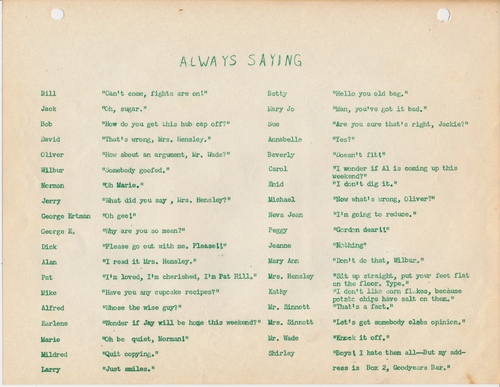 ALWAYS SAYING
Bill "Can't come, fights are on!"
Jack "Oh, sugar."
Bob "How do you get this hub cap off?"
David "That's wrong, Mrs. Hensley."
Oliver "How about an argument, Mr. Wade?"
Wilbur "Somebody goofed."
Norman "Oh Marie."
Jerry "What did you say , Mrs. Hensley?"
George Ertman "Oh gee!"
George E. "Why are you so mean?"
Dick "Please go out with me. Please!!"
Alan "I read it Mrs. Hensley."
Pat "I'm loved, I'm cherished, I'm Pat Hill."
Mike "Have you any cupcake recipes?"
Alfred "Whose the wise guy?"
Earlene "Wonder if Jay will be home this weekend?"
Marie "Oh be quiet, Norman!
Mildred "Quit copying."
Larry "Just smiles."
Betty "Hello you old bag."
Mary Jo "Man, you've got it bad."
Sue "Are you sure that's right, Jackie?"
Annabelle "Yes?"
Beverly "Doesn't fit!"
Carol "I wonder if Al is coming up this
weekend?"
Enid "I don't dig it."
Michael "Now what's wrong, Oliver?"
Neva Jean "I'm going to reduce."
Peggy "Gordon dear!!"
Jeanne "Nothing"
Mary Ann "Don't do that, Wilbur."
Mrs. Hensley "Sit up straight, put your feet flat
on the floor. Type."
Kathy "I don't like corn flakes, because
potato chips have salt on them."
Mr. Sinnott "That's a fact."
Mrs. Sinnott "Let's get somebody elses opinion."
Mr. Wade "Knock it off."
Shirley "Boys! I hate them all--But my add-
ress is Box 2, Goodyears Bar."